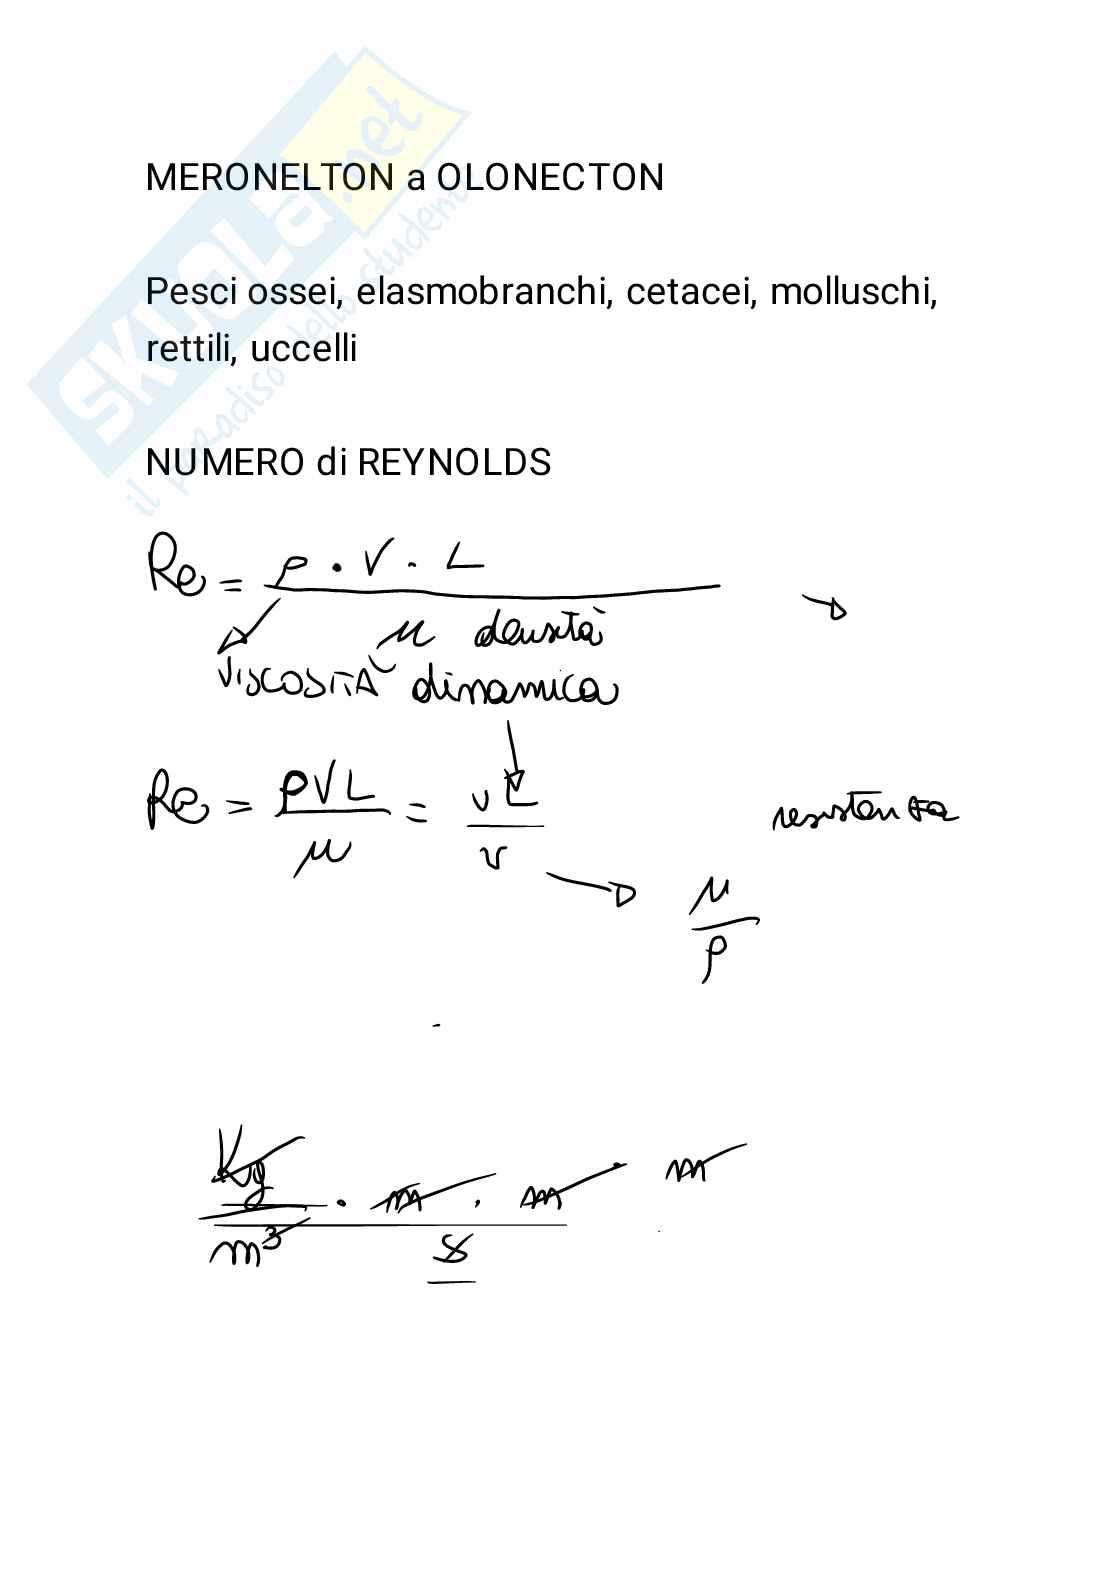 SKUOLa.net
il paradiso dello studente
MERONELTON a OLONECTON
Pesci ossei, elasmobranchi, cetacei, molluschi,
rettili, uccelli
NUMERO di REYNOLDS
Re = ρ · V · L
μ densità
VISCOSITÀ dinamica
Re = ρVL / μ = vL / ν
resistenza
μ / ρ
Kg / m³ · m / s · m m